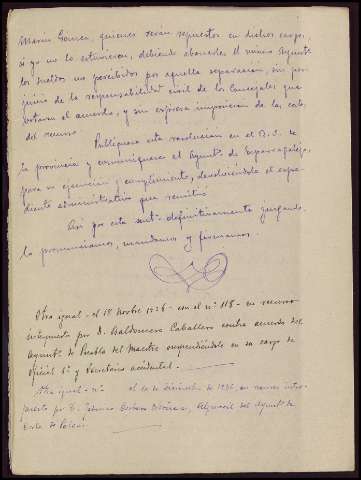 Marcos Gomez, quienes seran repuestos en dichos cargos,
si ya no lo estuvieran, debiendo abonarles el mismo Ayunt.
los sueldos no percibidos por aquella separación, sin per-
juicio de la responsabilidad civil de los Concejales que
votaron el acuerdo, y sin expresa imposicion de las costas
del recurso.
Publíquese esta resolucion en el B.O. de
la provincia y comuniquese al Ayunt. de Esparragalejo,
para su ejecucion y cumplimiento, devolviéndole el expe-
diente administrativo que remitió
Asi por esta sent. definitivamente juzgando,
lo pronunciamos, mandamos y firmamos.
Otra igual - el 18 Novbre 1936 - con el nº 118 - en recurso
interpuesto por D. Baldomero Caballero contra acuerdo del
Ayunt. de Puebla del Maestre suspendiéndole en su cargo de
Oficial 1º y Secretario accidental.
Otra igual - nº el de Diciembre de 1936, en recurso inter-
puesto por D. Alguacil del Ayunt. de